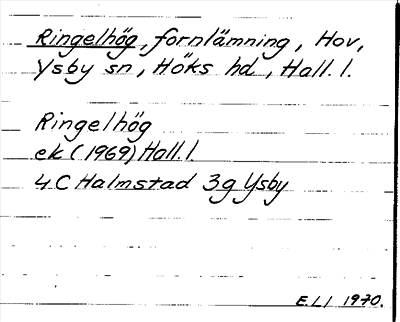 Ringelhög, fornlämning, Hov,
Ysby sn, Höks hd, Hall. l.
Ringelhög
ek (1969) Hall. l.
4 C Halmstad 3g Ysby
E.L.l 1970.